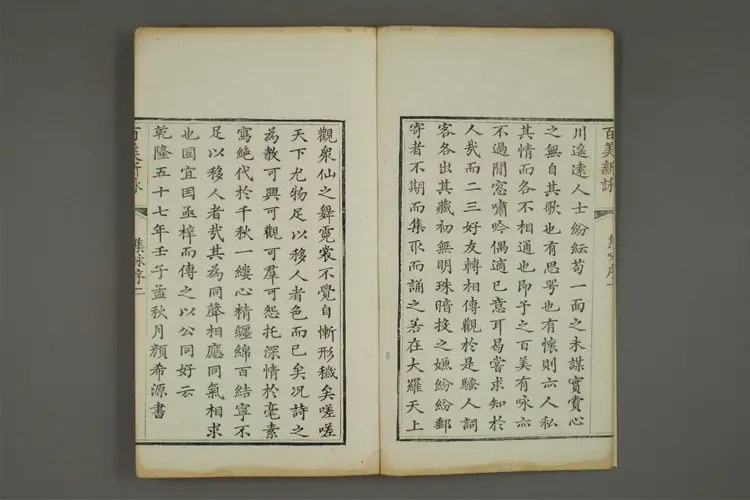 百美新詠
集咏序
一
川遙遠人士紛紜苟一面之未謀實賞心
之無自其歌也有思咢也有懷則亦人私
其情而各不相通也即予之百美有咏亦
不過閒窓嘯吟偶適已意耳曷嘗求知於
人哉而二三好友轉相傳觀於是騷人詞
客各出其藏初無明珠暗投之嫌紛紛郵
寄者不期而集取而誦之若在大羅天上
觀衆仙之舞霓裳不覺自慚形穢矣嗟嗟
天下尤物足以移人者色而已矣况詩之
為教可興可觀可羣可怨托深情於毫素
寫絶代於千秋一縷心精纏綿百結寧不
足以移人者哉其為同聲相應同氣相求
也固宜因亟梓而傳之以公同好云
乾隆五十七年壬子孟秋月顏希源書
百美新咏
集咏序
二